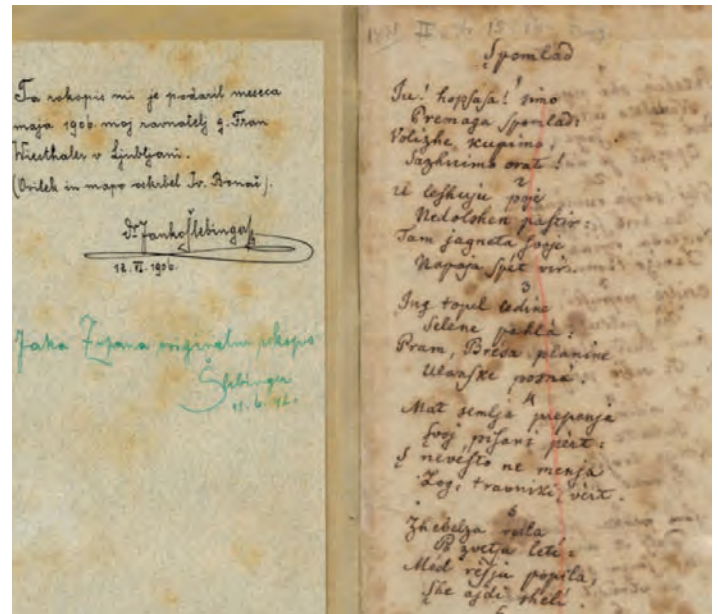 Ta rokopis mi je podaril meseca
maja 1906 moj ravnatelj g. Fran
Wiesthaler v Ljubljani.
(Ovitek in mapo oskrbel Iv. Bonač).
Dr Janko Šlebinger
12. VI. 1906.
Jaka Zupana originalni rokopis
Šlebinger
11. 6. 42.
II.
Spomlad
1
Ju! hopsasa! simo
Premaga Spomlad:
Volizhe kupimo,
Sazhnimo orat!
2
U leskuju poje
Nedolshen pastir:
Tam jagneta svoje
Napaja spét vir.
3
Jug topel ledine
Selene pehlá:
Pram, Bresa planine
Ulavske posná.
4
Mat semlja prepenja
Svoj pisani pèrt:
S nevesto ne menja
Log, travniki, vèrt.
5
Zhebelza rosla
Po zvetja leti:
Méd résja popila,
She ajdi sheli.